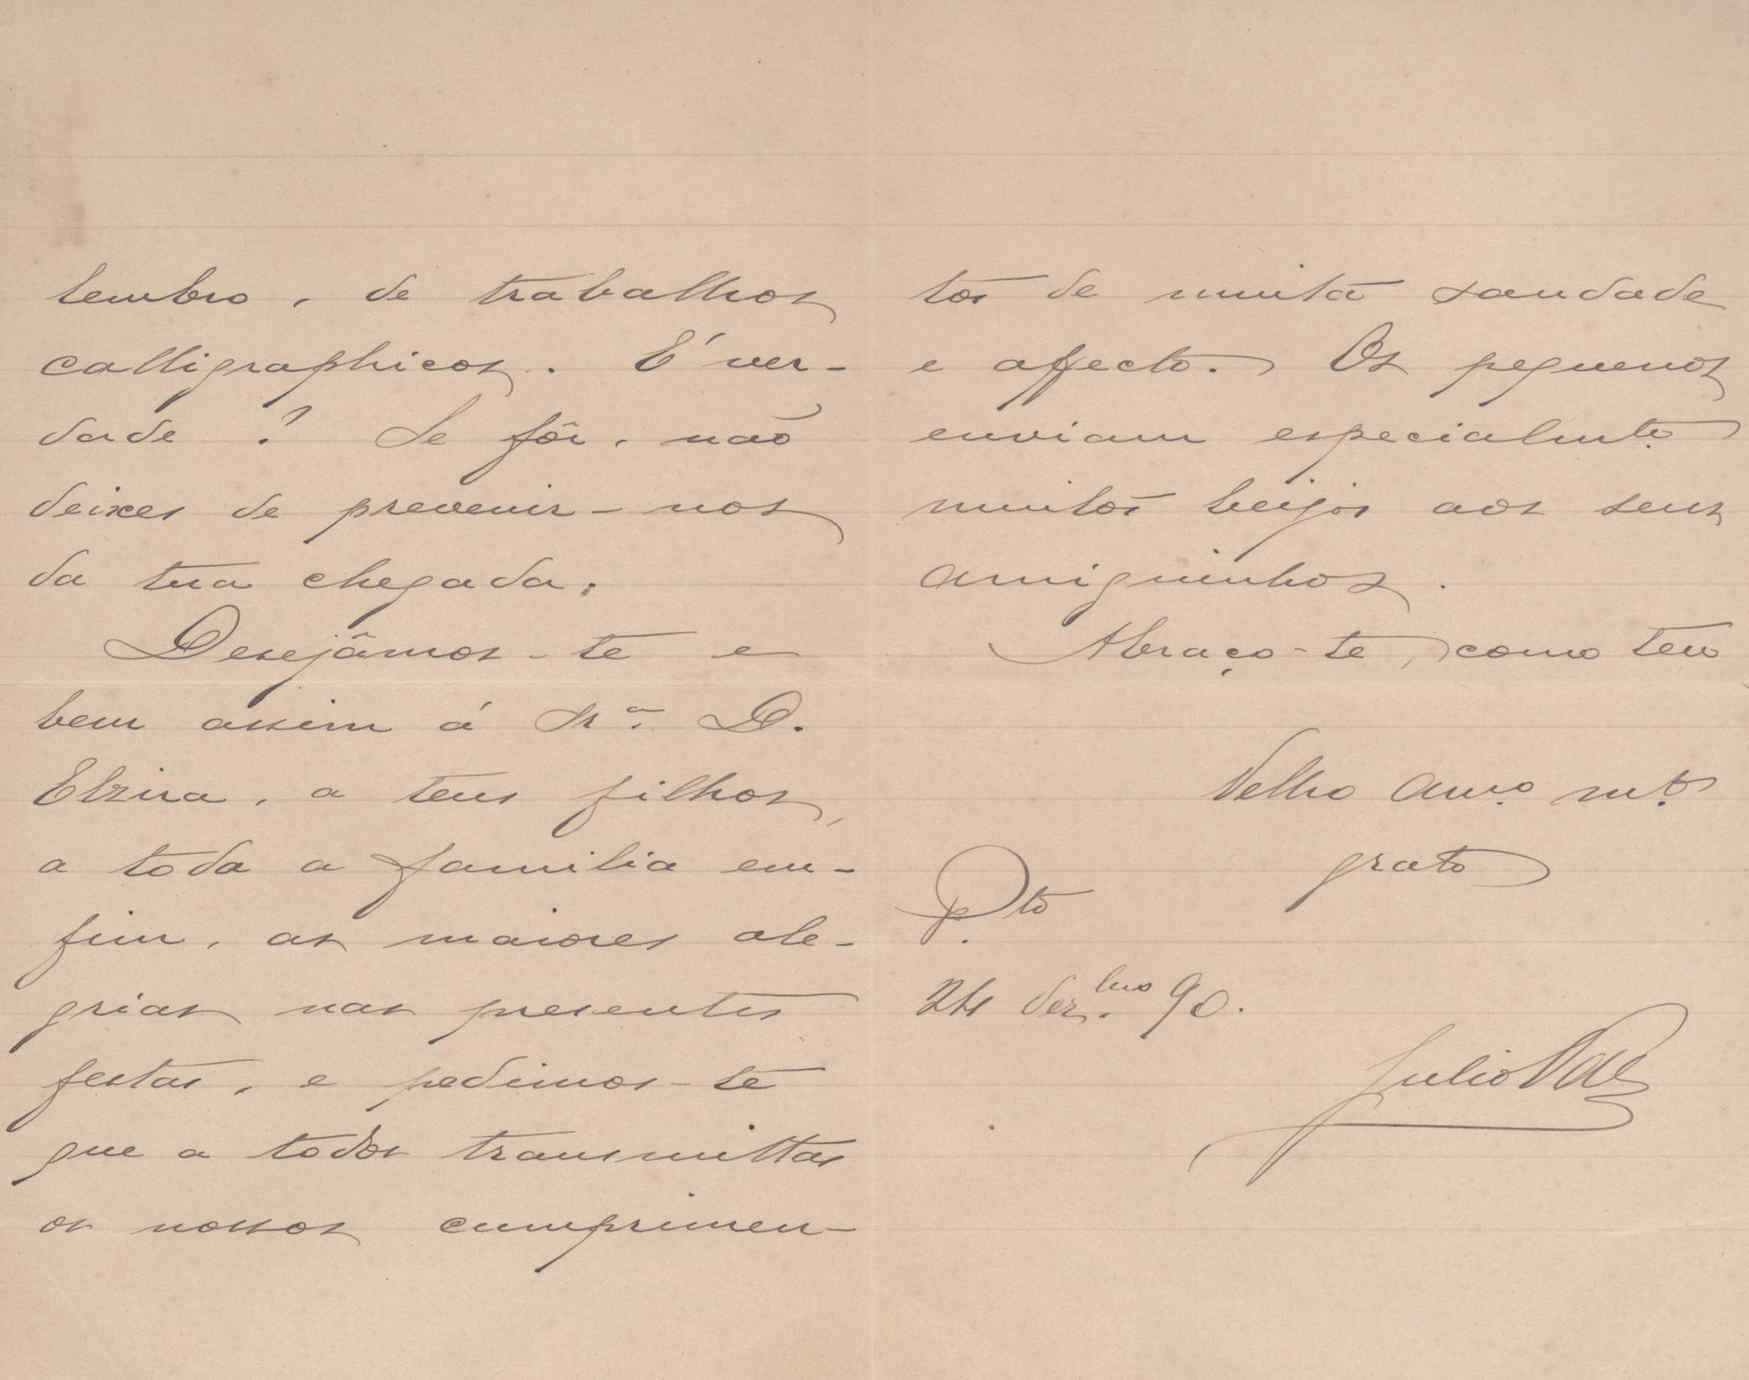 tembro, de trabalhos
calligraphicos. É ver-
dade? Se fôr, não
deixes de prevenir-nos
da tua chegada.
Desejâmos-te e
bem assim á Sr.ª D.
Elzira, a teus filhos,
a toda a familia em-
fim, as maiores ale-
grias nas presentes
festas, e pedimos-te
que a todos transmittas
os nossos cumprimen-
tos de muita saudade
e affecto. Os pequenos
enviam especialmte.
muitos beijos aos seus
amiguinhos.
Abraço-te, como teu
Velho amo. mto.
grato
Pto.
24 dezbro. 90.
Julio Vaz